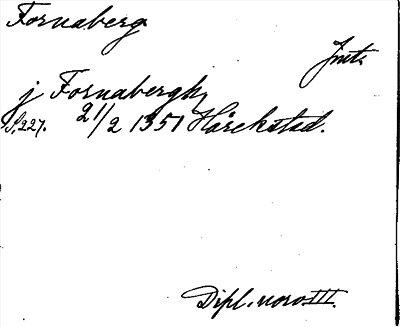 Fornaberg
Jnt.
j Fornabergh
S. 227. 21/2 1351 Hårekstad.
Dipl. norv. III.